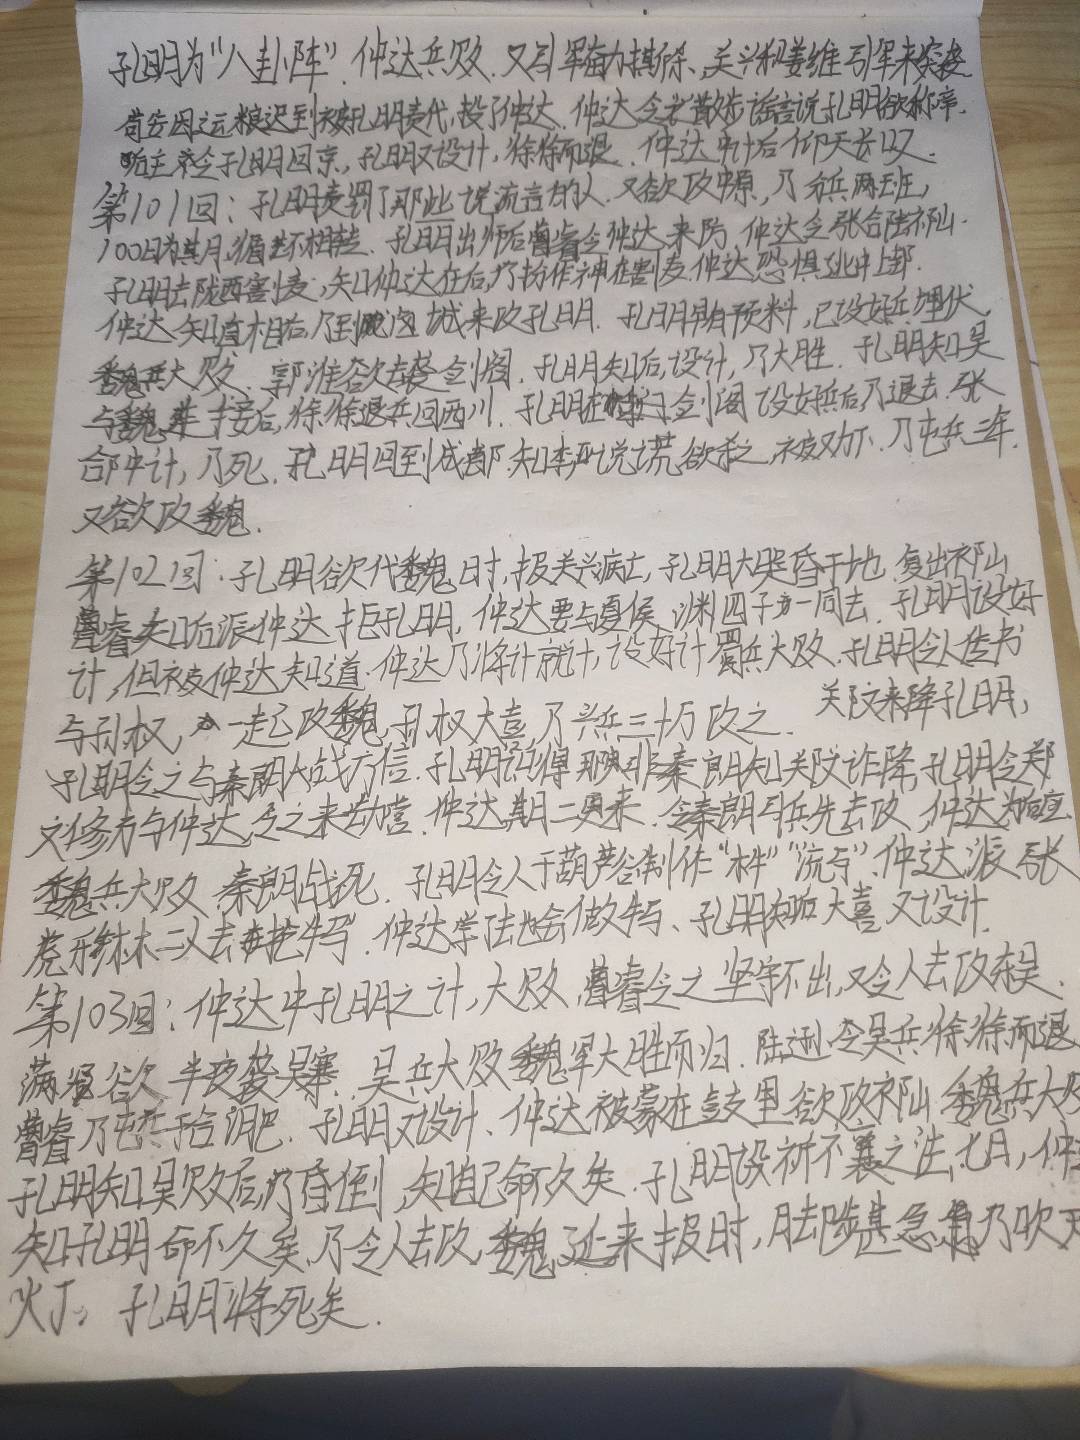 孔明为“八卦阵”.仲达兵败.又引军奋力撕杀、关兴和姜维引军来突
苟安因运粮迟到被孔明责代,投了仲达.仲达令苟散布谣言说孔明欲称帝.
后主令孔明回京,孔明又设计,徐徐而退.仲达中计后仰天长叹.
第101回:孔明责罚了那些说流言的人.又欲攻中原,乃分兵两班,
100日为其月,循环相转.孔明出师后曹睿令仲达来防.仲达令张合陆祁山.
孔明去陇西割麦,知仲达在后,乃扮作神在割麦.仲达恐惧逃中上邽.
仲达知道真相后,乃到卤城来攻孔明.孔明早有预料,已设好兵埋伏,
魏兵大败.郭淮欲去袭剑阁.孔明知后,设计,乃大胜.孔明知吴
与魏连接后,徐徐退兵回西川.孔明在剑阁设好兵后乃退去.张
郃中计,乃死.孔明回到成都.知李严说谎欲杀之,被劝下.乃屯兵三年.
又欲攻魏.
第102回:孔明欲代魏时,报关兴病亡,孔明大哭昏于地.复出祁山
曹睿知后派仲达拒孔明,仲达要与夏侯渊四子一同去.孔明设好
计,但被仲达知道.仲达乃将计就计,设好计蜀兵大败.孔明令人传书
与孙权,一起攻魏,孙权大喜,乃兴兵三十万攻之.
郑文来降孔明,
孔明令之与秦朗大战方信.孔明认得那非秦朗知郑文诈降,孔明令郑
文修书与仲达,令之来劫营.仲达期二更来.令秦朗引兵先去攻,仲达为后应
魏兵大败.秦朗战死.孔明令人于葫芦谷制作“木牛”“流马”.仲达派张
虎乐綝二人去抢牛马.仲达学法也会做牛马、孔明知后大喜又设计.
第103回:仲达中孔明之计,大败,曹睿令之坚守不出,又令人去攻东吴.
满宠欲半夜袭吴寨.吴兵大败魏军大胜而归.陆逊令吴兵徐徐而退
曹睿乃屯兵于合淝.孔明又设计、仲达被蒙在鼓里欲攻祁山.魏兵大败
孔明知吴败后,乃昏倒,知自己命不久矣.孔明设祈禳之法,七月,仲达
知孔明命不久矣,乃令人去攻,魏延来报时,脚步甚急乃吹灭
火丁。孔明将死矣.